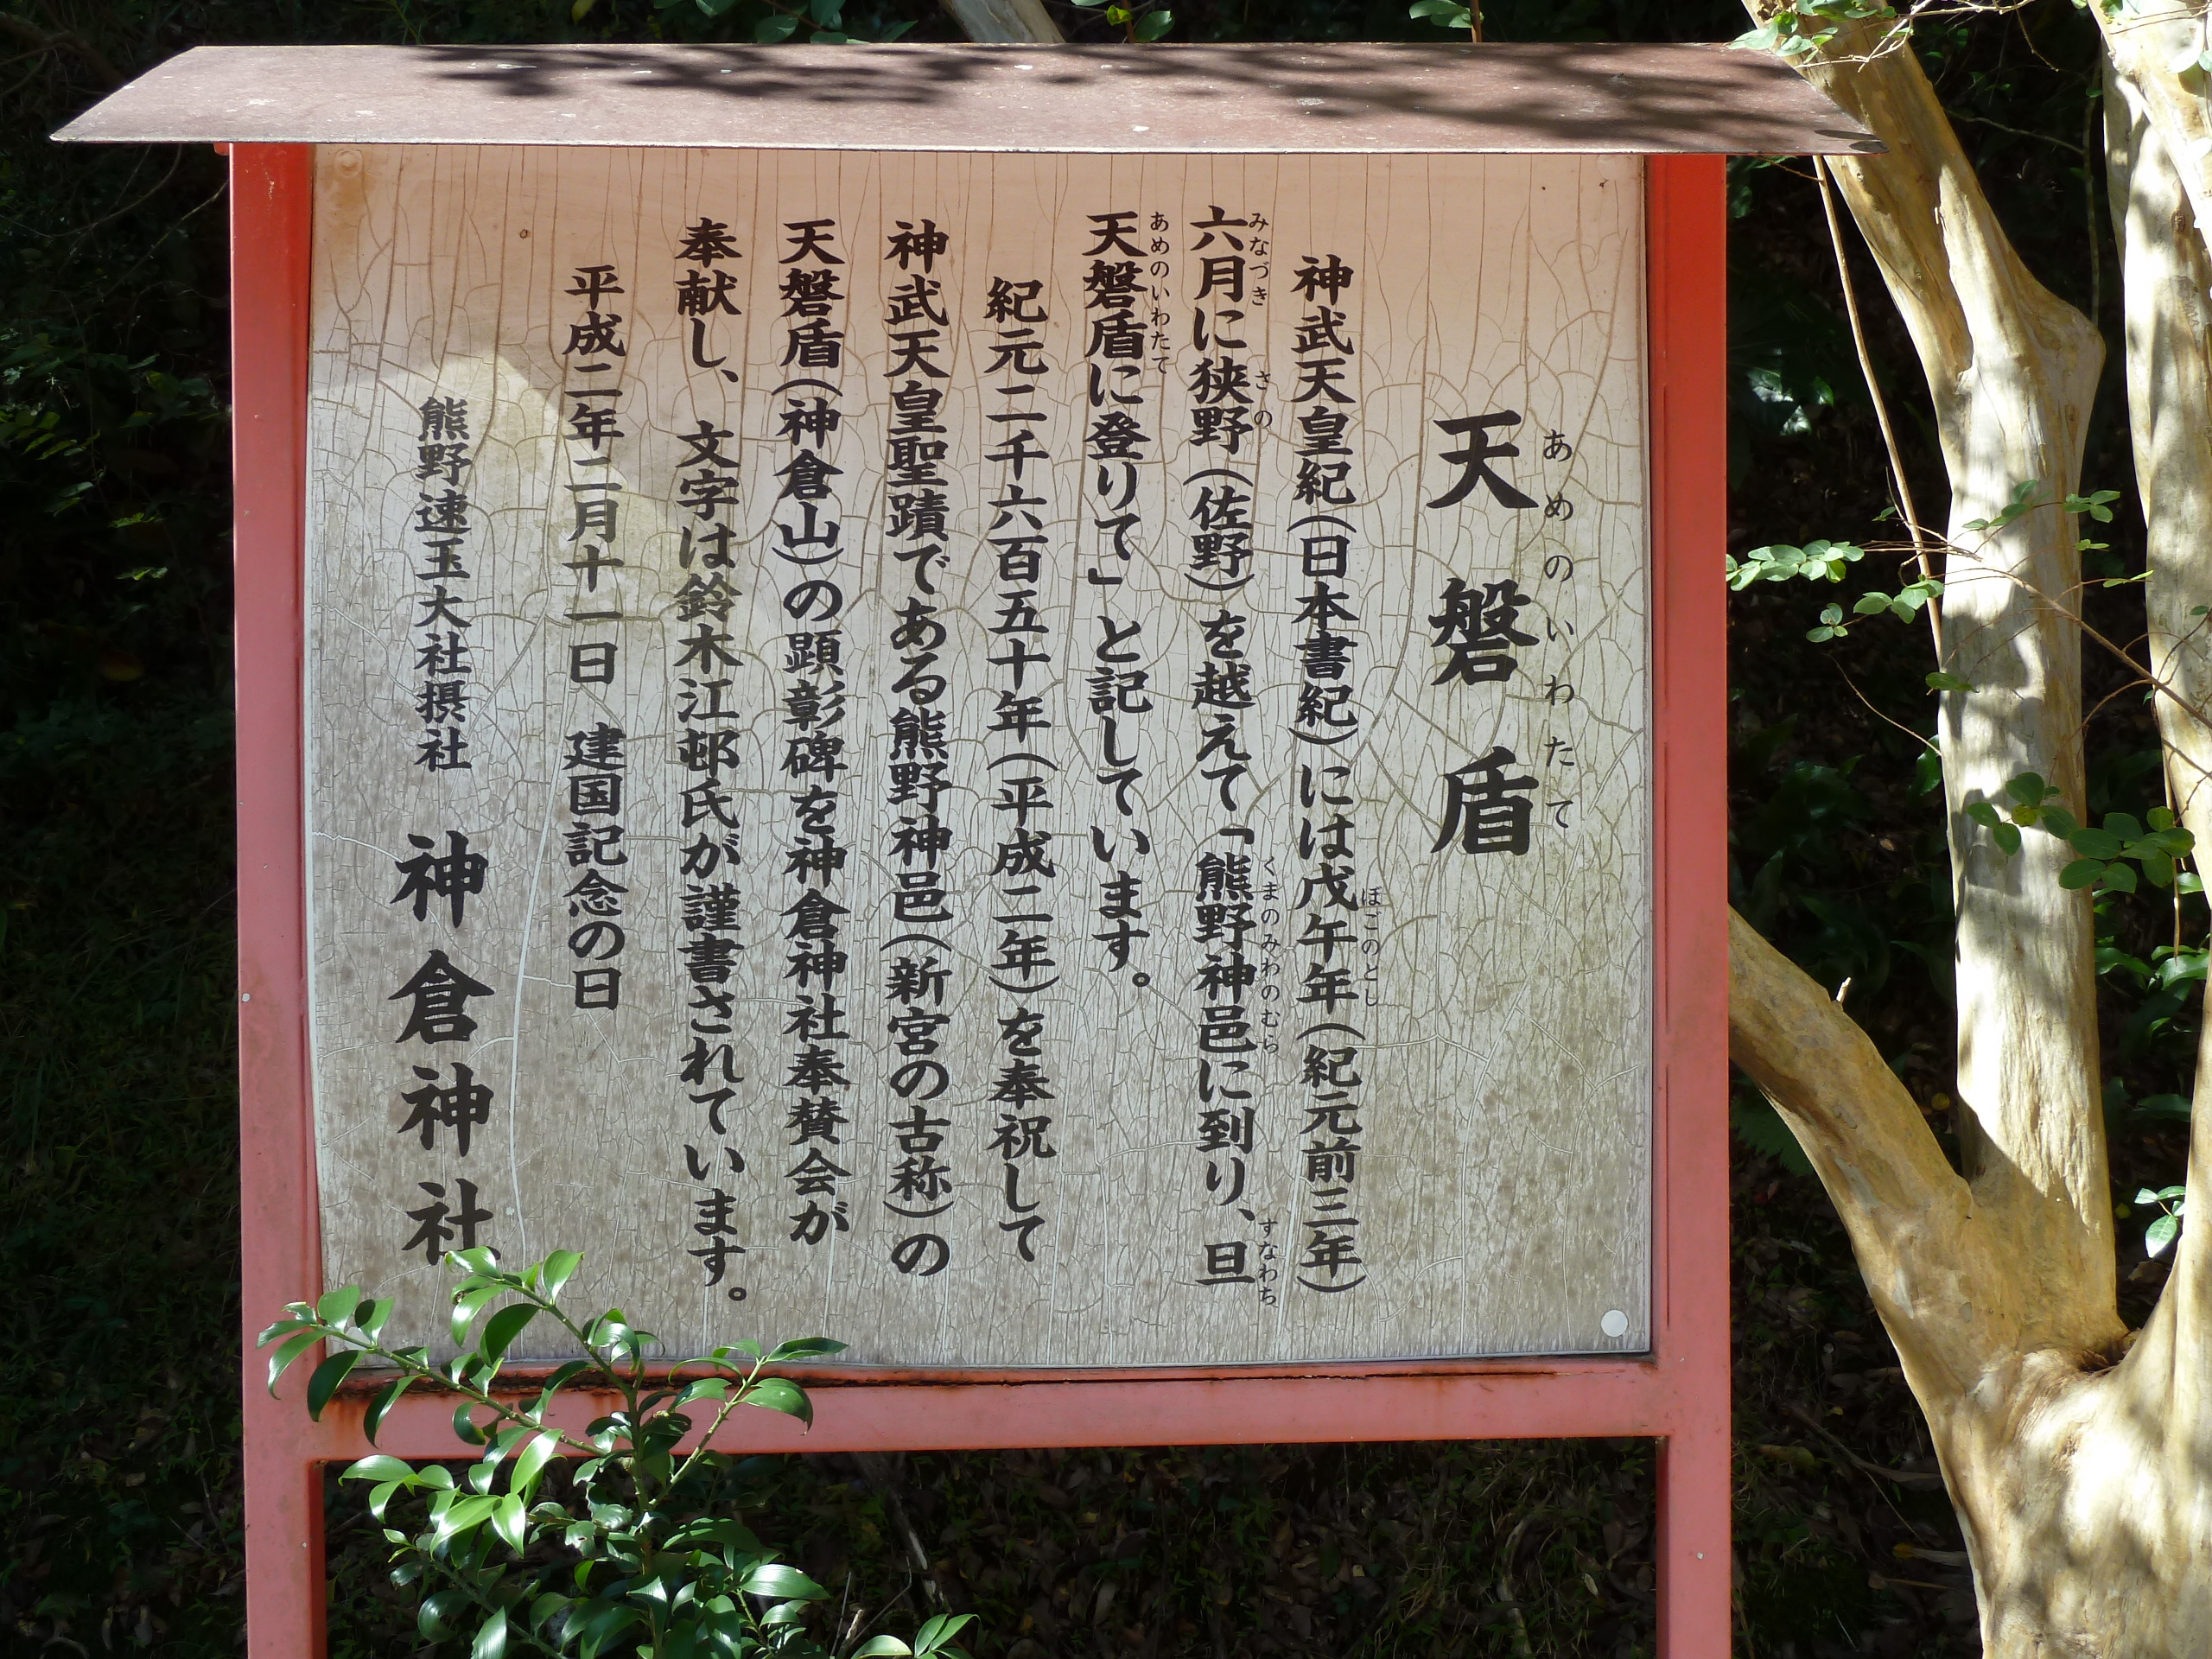 天磐盾
あめのいわたて
神武天皇紀(日本書紀)には戊午年(紀元前三年)
ほこのとし
六月に狭野(佐野)を越えて、「熊野神邑に到り、旦
みなづき さの くまのみわのむら すなわち
天磐盾に登りて」と記しています。
あめのいわたて
紀元二千六百五十年(平成二年)を奉祝して
神武天皇聖蹟である熊野神邑(新宮の古称)の
天磐盾(神倉山)の顕彰碑を神倉神社奉賛会が
奉献し、文字は鈴木江邨氏が謹書されています。
平成二年二月十一日 建国記念の日
熊野速玉大社摂社 神倉神社